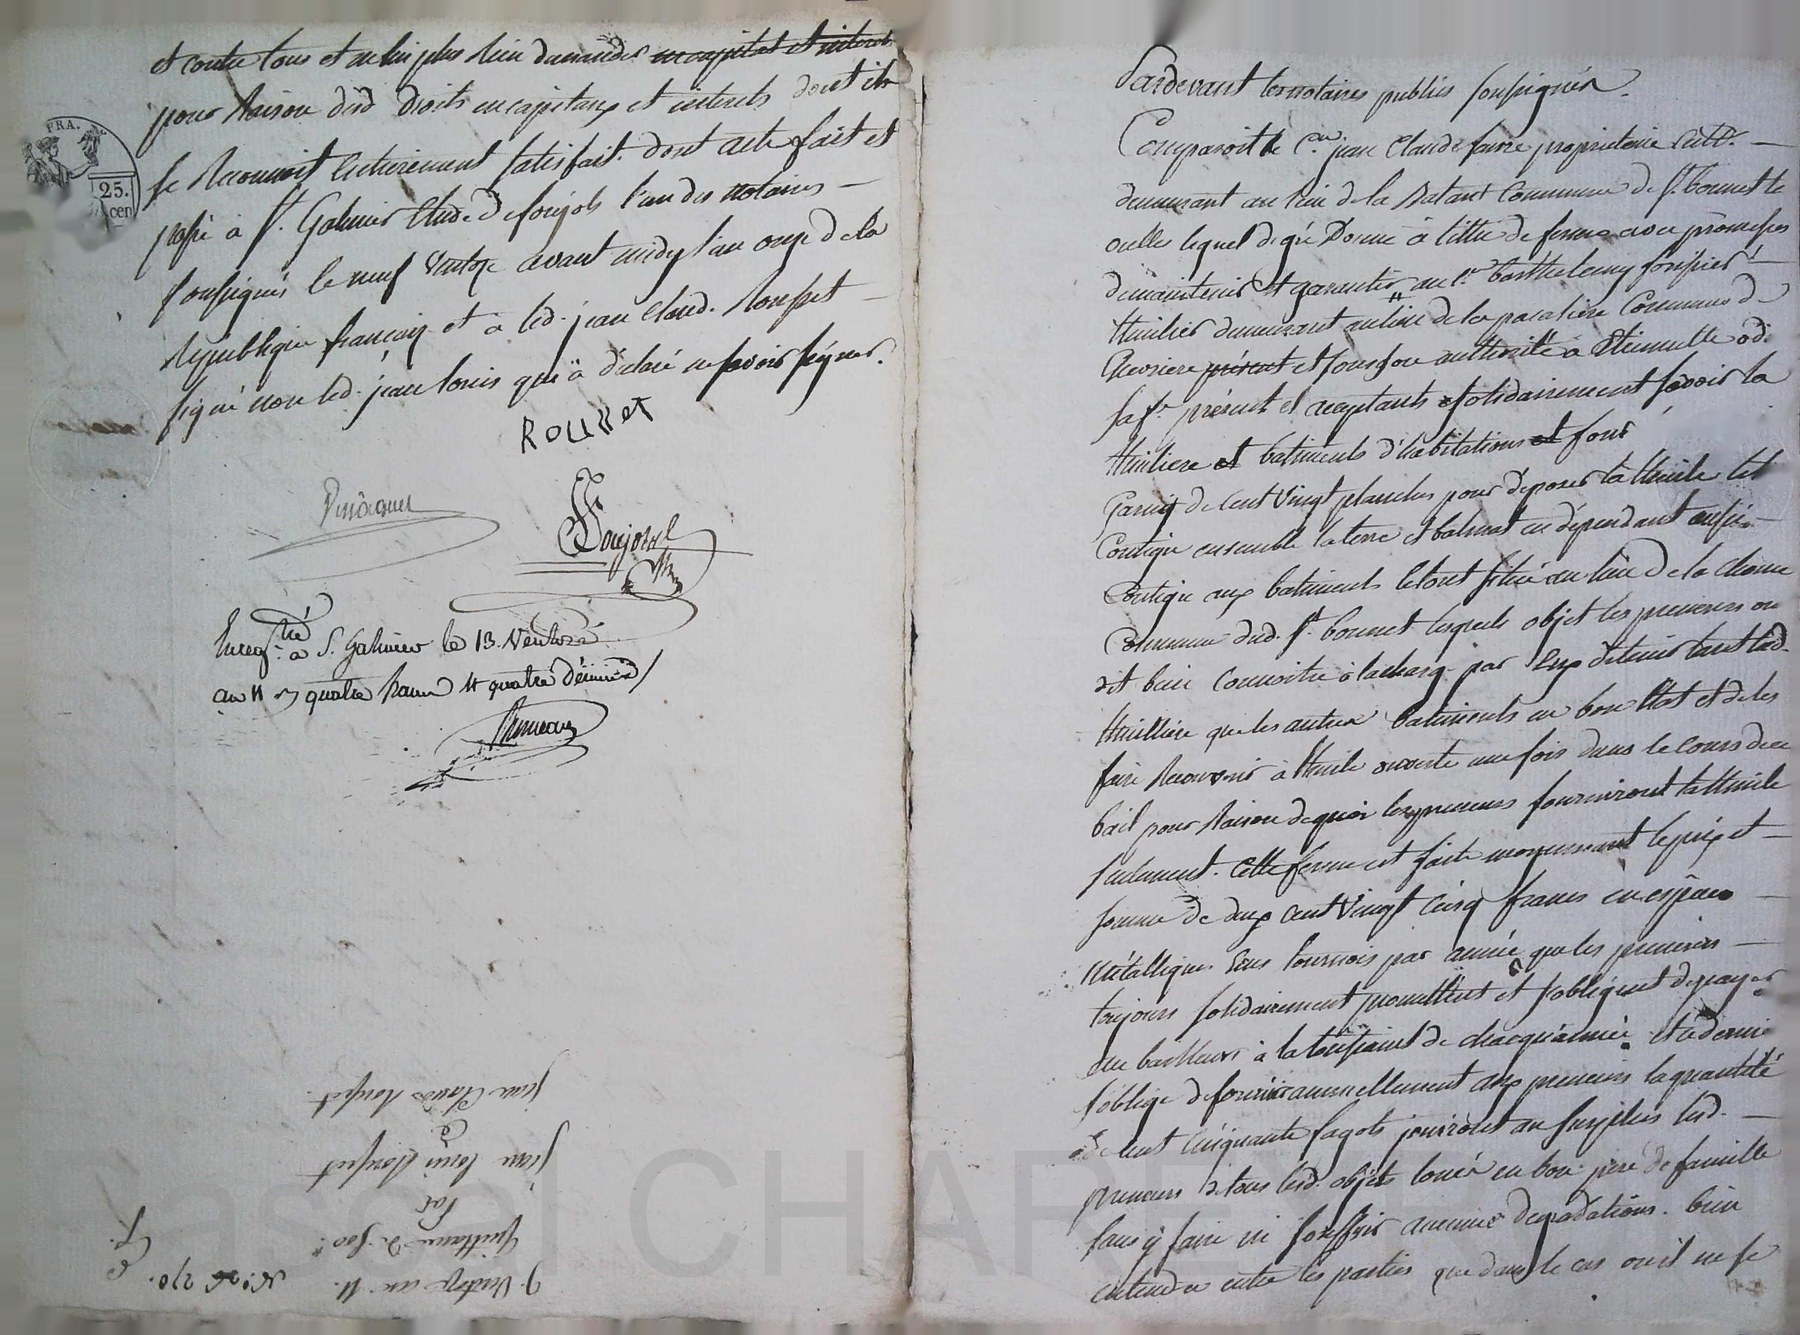 et contre tous et ne lui plus rien demander en capital et interets
pour Raison dud droits en capitaux et interets dont il
se Reconnoit Entierement satisfait. dont acte fait et
passé à St. Galmier Etude de foujols l'un des notaires
soussignés le neuf Ventose avant midy l'an onze de la
République française et a led. jean Claude Rousset
signé non led. jean louis qui a déclaré ne savoir signer.
FRA.
25.
cen
ROUSSET
Foujols
Enregtré à S. Galmier le 13. Ventose
an 11 quatre francs 44 quatre décimes
9. Ventose an 11.
quittance de 800#
Par
jean louis Rousset
a
jean Claude Rousset.
270.
Pardevant les notaires publics soussignés.
Comparoit le Cen. jean Claude faure proprietaire Cultr.
demeurant au lieu de la Batant Commune de St. Bonnet le
oulles lequel de gré Donne à titre de ferme avec promesses
de maintenir et garantir au Cn. Barthelemy
huilier demeurant au lieu de la Commune de
présent et sous son authorité à Etiennette
sa fe. présents et acceptants solidairement savoir la
Huiliere et batiments d'habitations et four
Garnis de cent vingt planches pour déposer la Thuile
Contigu ensemble la terre et en dépendant aussi
Contigu aux batiments le tout situé au lieu de la
Commune dud. St. bonnet lesquels objet les preneurs ont
dit bien Connoitre à la charge par Eux d'etenir tant lad.
thuilliere que les autres batiments en bon Etat et de les
faire Recouvrir à Thuile ouverte une fois dans le cours du
bail pour Raison de quoi les preneurs fourniront la Thuile
seulement. Cette ferme est faite moyennant le prix et
somme de deux cent vingt cinq francs en espèces
métalliques sous tournois par année que les preneurs
toujours solidairement promettent et s'obligent de payer
au bailleur à la toussaint de chacqu'année. et ce dernier
s'oblige de fournir annuellement aux preneurs la quantité
de cent cinquante fagots jouiront au surplus lesd.
preneurs de tous lesd. objets loués en bon pere de famille
sans y faire ni souffrir aucunes degradations. bien
entendu entre les parties que dans le cas où il ne se
Pascal CHAREYRON